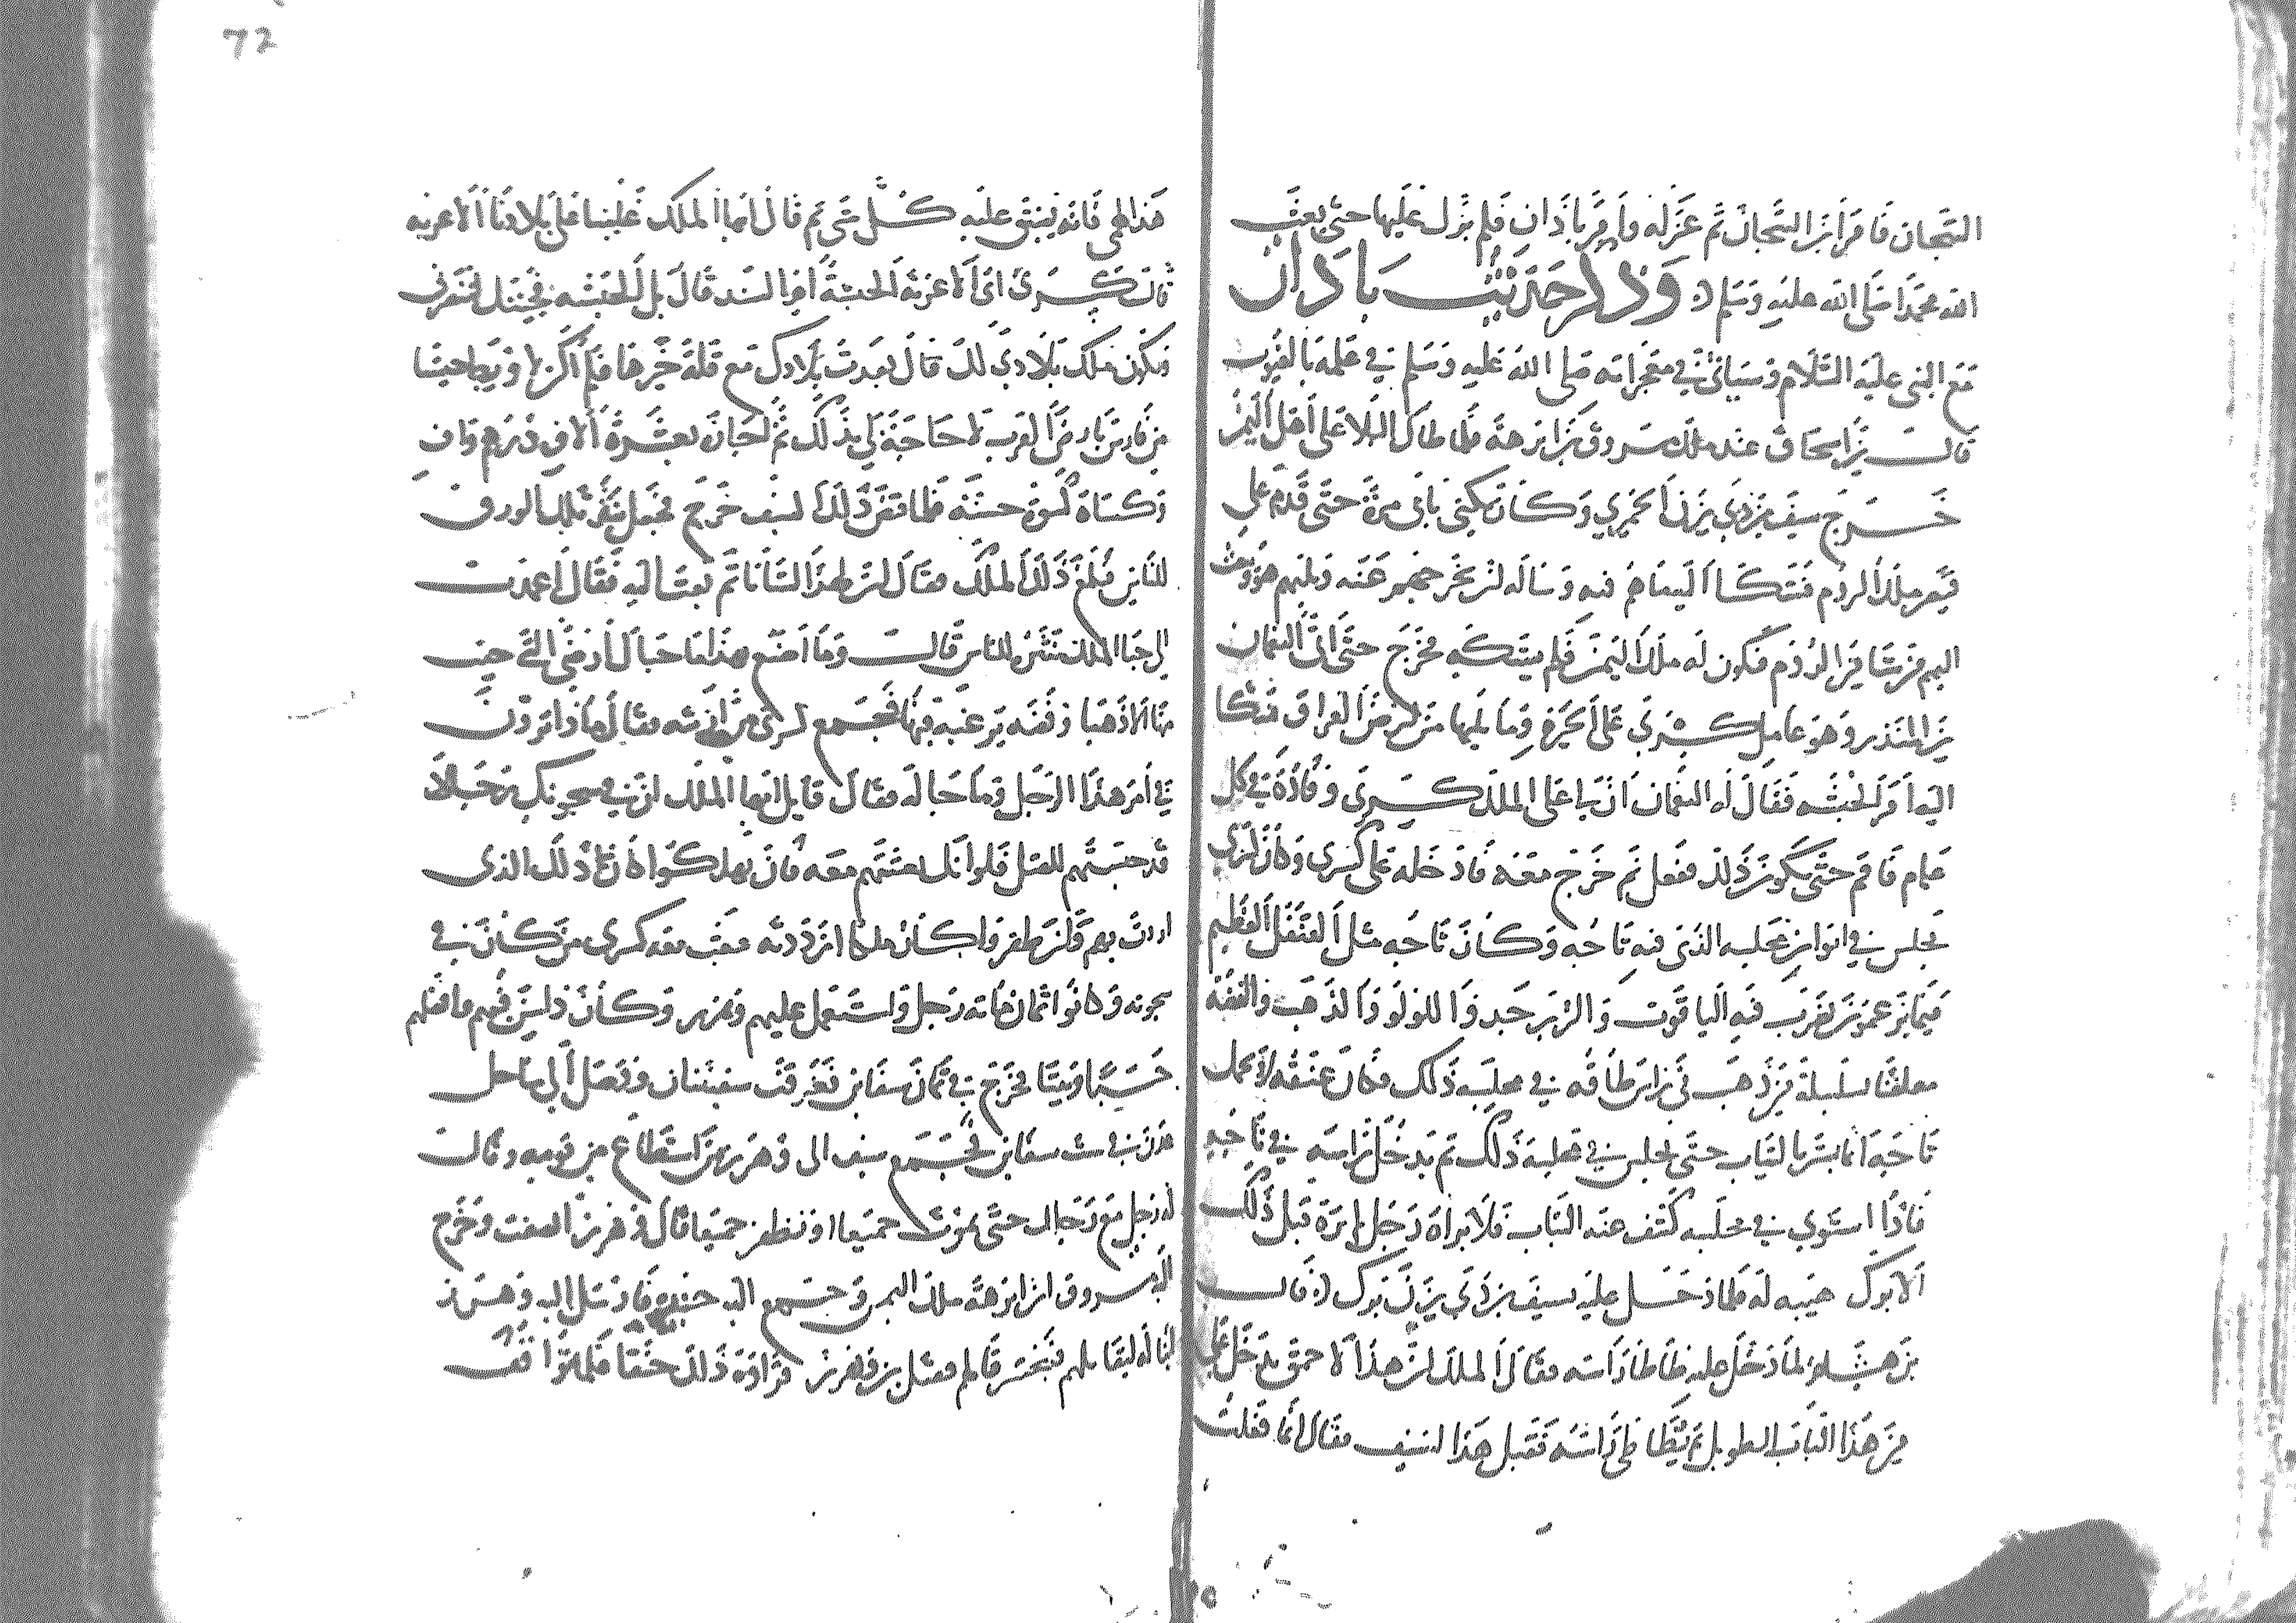 التيجان فأمر ابن التيجان ثم عزله وأمر باذان فلم يزل عليها حتى بعث
الله محمدا صلى الله عليه وسلم وذكر حديث باذان
مع النبي عليه السلام وسيأتي في معجزاته صلى الله عليه وسلم في علمه بالغيوب
قال ابن اسحاق عند ملك مسروق بن ابرهة فلما طال البلا على أهل اليمن
خرج سيف بن ذي يزن الحميري وكان يكنى بأبي مرة حتى قدم على
قيصر ملك الروم فشكا اليه ما هم فيه وسأله ان يخرجهم عنه ويليهم هو ويبعث
اليهم من شا من الروم فيكون له ملك اليمن فلم يشكه فخرج حتى أتى النعمان
بن المنذر وهو عامل كسرى على الحيرة وما يليها من أرض العراق فشكا
اليه أمر الحبشه فقال له النعمان ان لي على الملك كسرى وفادة في كل
عام فأقم حتى يكون ذلك ففعل ثم خرج معه فادخله على كسرى وكان كسرى
يجلس في ايوان مجلسه الذي فيه تاجه وكان تاجه مثل القنقل العظيم
فيما يزعمون يضرب فيه الياقوت والزبرجد واللولو والذهب والفضه
معلقا بسلسلة من ذهب في راس طاقه في مجلسه ذلك فكان عنقه لا تحمل
تاجه انما يستر بالثياب حتى يجلس في مجلسه ذلك ثم يدخل راسه في تاجه
فاذا استوي في مجلسه كشف عنه الثياب فلا يراه رجل لم يره قبل ذلك
الا برك هيبه له فلما دخل عليه سيف بن ذي يزن برك قال
بن هشام لما دخل عليه طاطا راسه فقال الملك ان هذا الاحمق يدخل علي
من هذا الباب الطويل ثم يطاطي راسه فقيل هذا لسيف فقال انما فعلت
72
هذا لهمي فانه يضيق عليه كل شي ثم قال ايها الملك غلبنا على بلادنا الاغربه
قال كسرى اي الاغربة الحبشة ام السند قال بل الحبشه فجيتك لتنصرني
وتكون ملك بلادي لك قال بعدت بلادك مع قلة خيرها فلم اكن لاورط جيشا
من فارس بارض العرب لا حاجة لي بذلك ثم اجازه بعشرة الاف درهم واف
وكساه كسوة حسنة فلما قبض ذلك سيف خرج فجعل ينثر تلك الورق
للناس فبلغ ذلك الملك فقال ان لهذا لشأنا ثم بعث اليه فقال أعمدت
الى حبا الملك تنثره للناس قال وما اصنع بهذا ما جبال ارضي التي جيت
منها الا ذهبا وفضه يرغبه فيها فجمع كسرى مرازبته فقال ماذا ترون
في أمر هذا الرجل وما جا له فقال قايل ايها الملك ان في سجونك رجالا
قد حبستهم للقتل فلو انك بعثتهم معه فان يهلكوا كان ذلك الذي
اردت بهم وان ظفروا كان ملكا ازددته فبعث معه كسرى من كان في
سجونه وكانوا ثمان مائه رجل واستعمل عليهم وهرز وكان ذا سن فيهم وافضلهم
حسبا وبيتا فخرج في ثمان سفاين فغرقت سفينتان ووصل الى ساحل
عدن في ست سفاين فجمع سيف الى وهرز من استطاع من قومه وقال
له رجلي مع رجلك حتى نموت جميعا او نظفر جميعا قال وهرز انصفت وخرج
اليه مسروق ابن ابرهة ملك اليمن وجمع اليه جنده فارسل اليه وهرز
ابنا له ليقاتلهم فيختبر قتالهم فقتل بن وهرز فزاده ذلك حنقا فلما تواقف